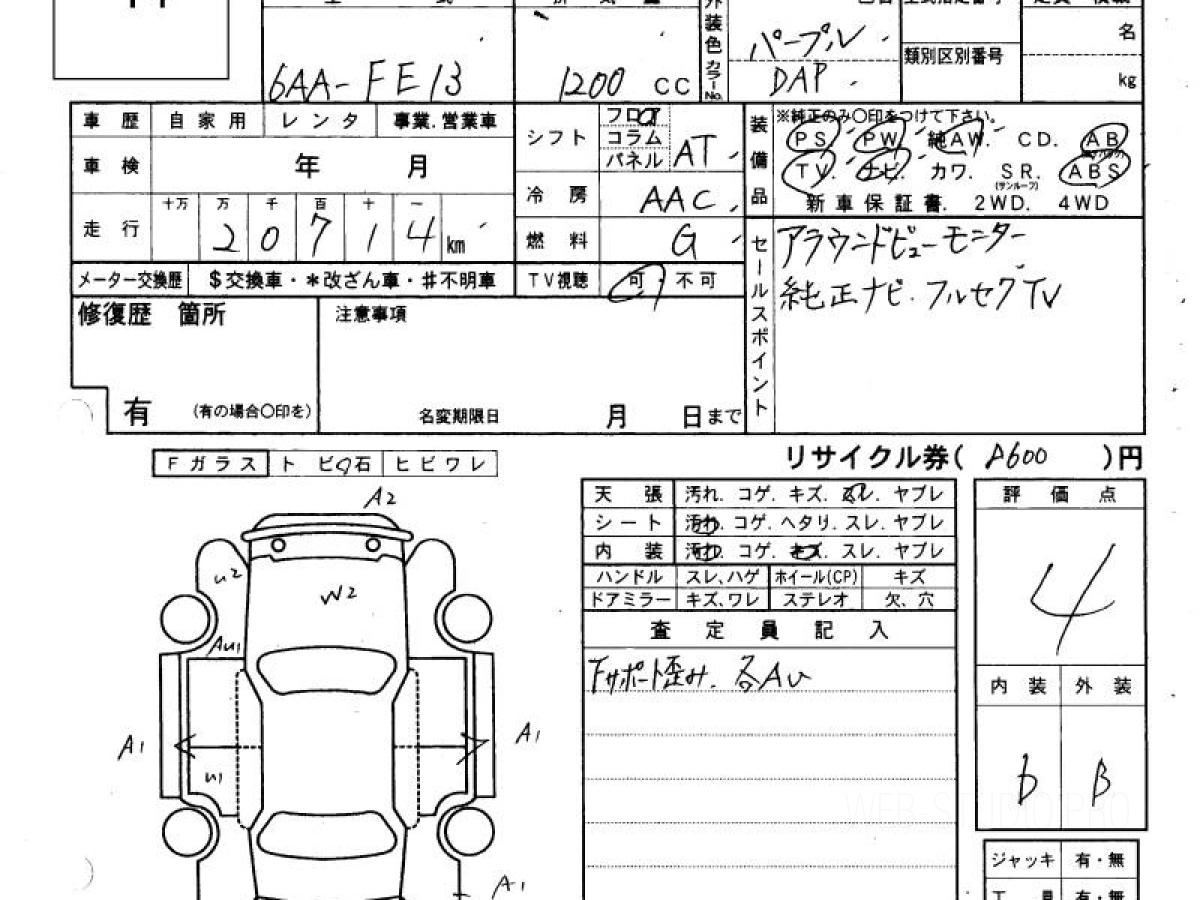 外装色 カラーNo.
パープル
DAP
名
類別区別番号
kg
6AA-FE13
1200 CC
車歴 自家用 レンタ 事業.営業車
シフト フロア コラム パネル AT
装備品 ※純正のみ〇印をつけて下さい。
PS PW 純AW. CD. AB
(エアバック)
TV. ナビ カワ. SR. ABS
(サンルーフ)
新車保証書. 2WD. 4WD
車検 年 月
冷房 AAC
走行 十万 万 千 百 十 一
20714km
燃料 G
セールスポイント アラウンドビューモニター
純正ナビ.フルセグTV
メーター交換歴 $交換車・*改ざん車・#不明車 TV視聴 可・不可
修復歴 箇所 注意事項
有 (有の場合〇印を) 名変期限日 月 日まで
リサイクル券( 8600 )円
Fガラス トビ石 ヒビワレ
A2
天張 汚れ. コゲ. キズ. スレ. ヤブレ
シート 汚れ. コゲ. ヘタリ. スレ. ヤブレ
内装 汚れ. コゲ. キズ. スレ. ヤブレ
ハンドル スレ、ハゲ ホイール(CP) キズ
ドアミラー キズ、ワレ ステレオ 欠、穴
評価点
4
査定員記入
Fサポート歪み. 各AU
U2
W2
AU1
内装 外装
b B
A1
A1
U1
WEB STUDIO PRO
ジャッキ 有・無
工具 有・無
A1